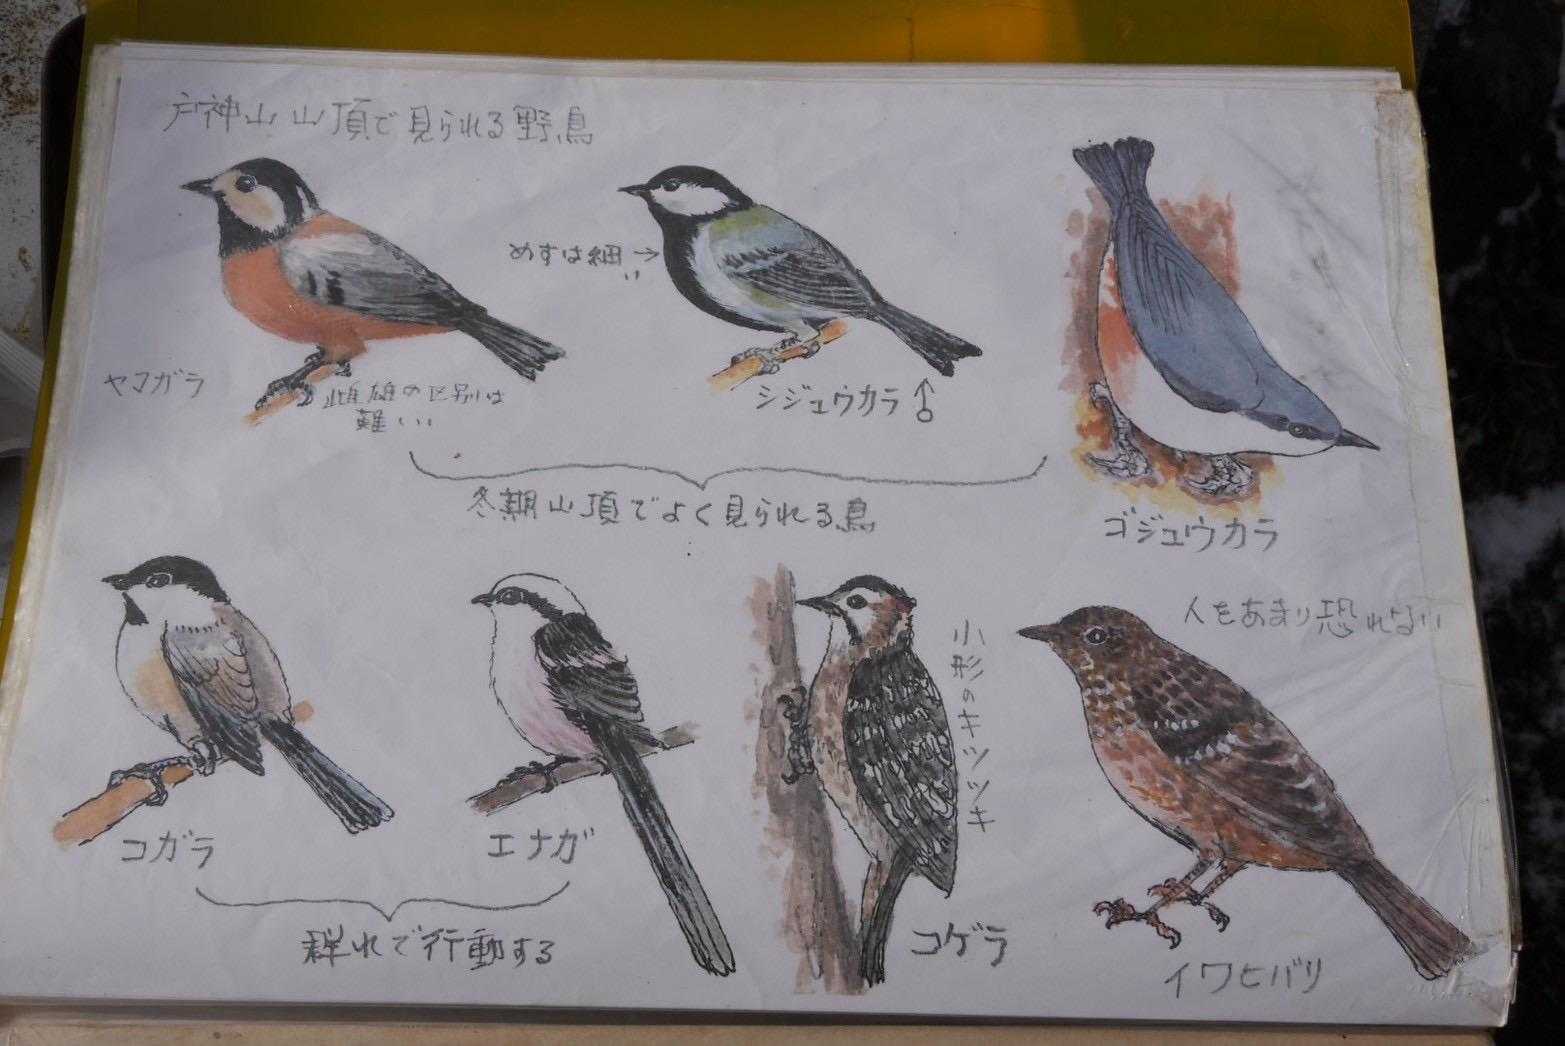 戸神山山頂で見られる野鳥
めすは細い→
ヤマガラ
雌雄の区別は
難しい
シジュウカラ♂
ゴジュウカラ
冬期山頂でよく見られる鳥
人をあまり恐れない
小形のキツツキ
コガラ
エナガ
群れで行動する
コゲラ
イワヒバリ